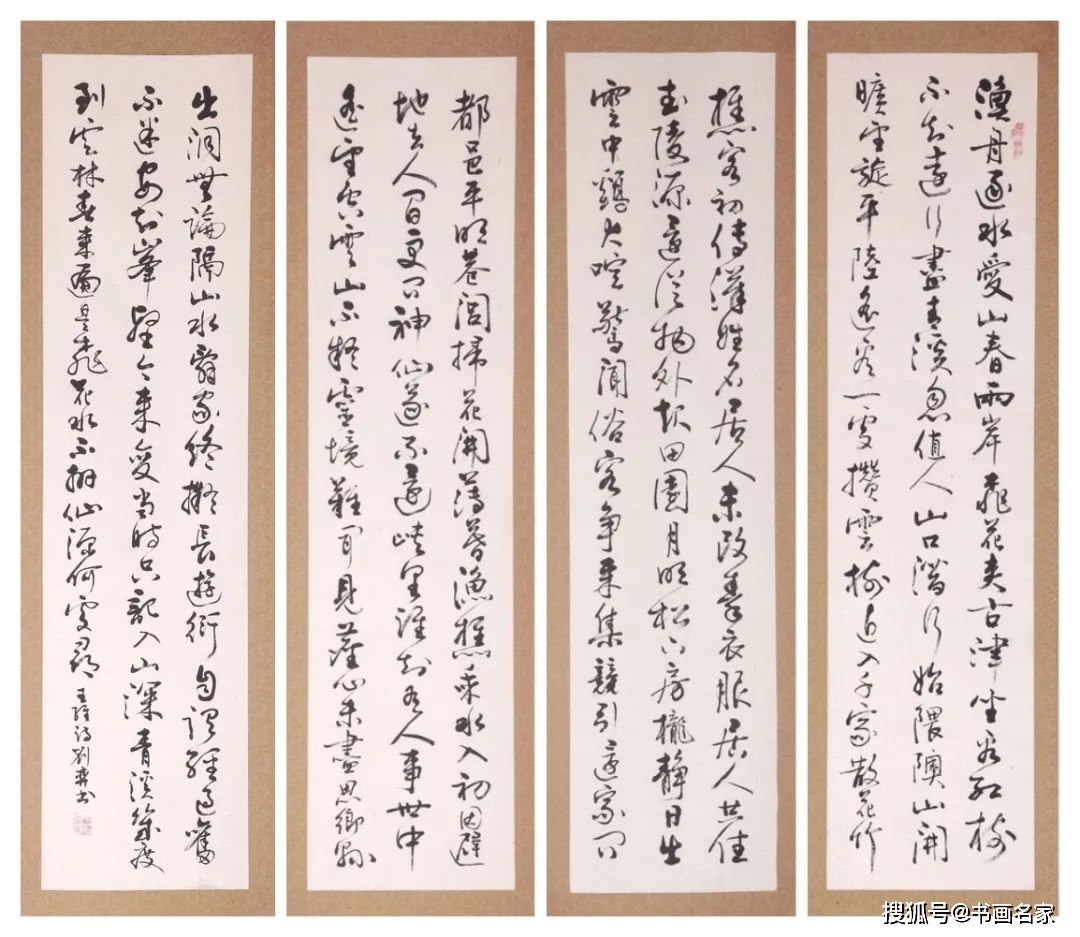 漁舟逐水愛山春兩岸桃花夾古津坐看紅樹
不知遠行盡青溪忽值人山口潛行始隈隩山開
曠望旋平陸遙看一處攢雲樹近入千家散花竹
樵客初傳漢姓名居人未改秦衣服居人共住
武陵源還從物外起田園月明松下房櫳靜日出
雲中鷄犬喧驚聞俗客爭來集競引還家問
都邑平明巷閭掃花開薄暮漁樵乘水入初因避
地去人間更問神仙遂不還峽里誰知有人事世中
遙望空雲山不疑靈境難聞見塵心未盡思鄉縣
出洞無論隔山水辭家終擬長遊衍自謂經過舊
不迷安知峯壑今來變當時只記入山深青溪幾度
到云林春來遍是桃花水不辨仙源何處尋 王維詩劉
搜狐号@书画名家